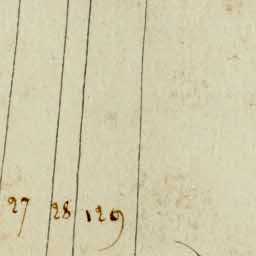 27 28 129